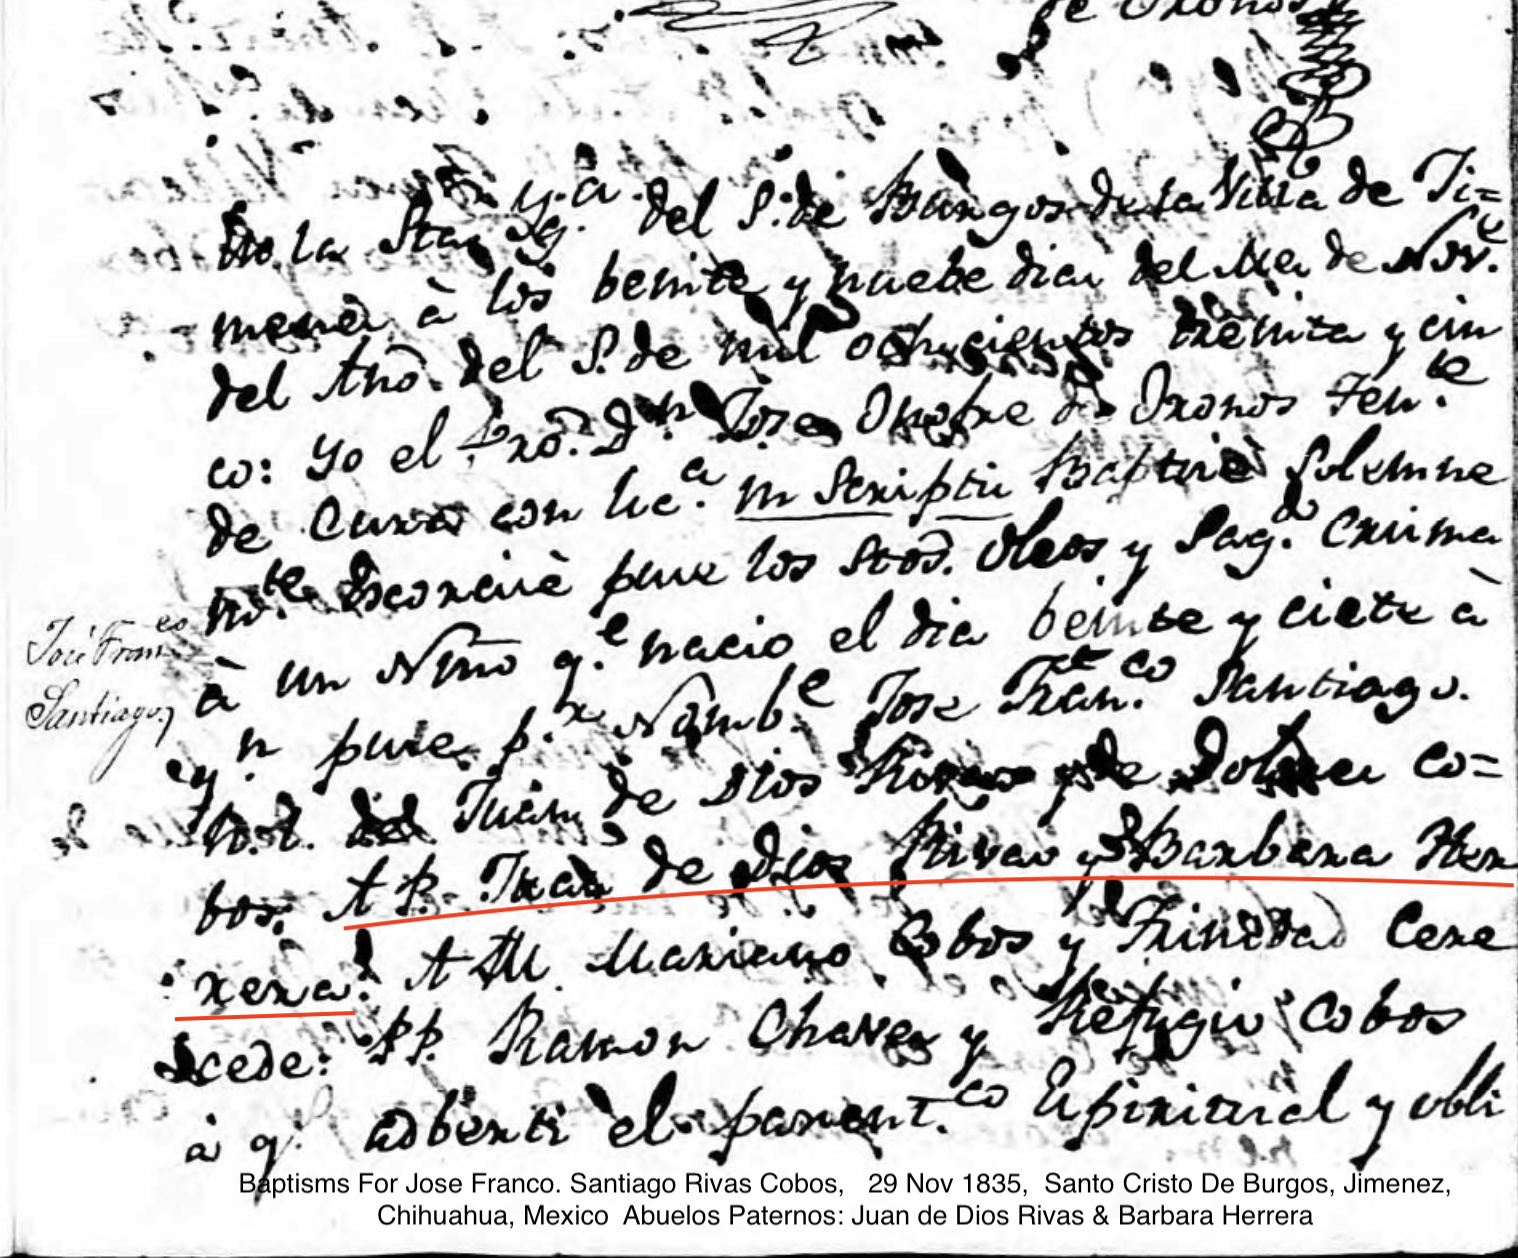 de Oronos
En la Sta Yg.ª del S. de Burgos de la Villa de Ji=
menes à los beinte y nuebe dias del Mes de Nov.e
del Año del S. de mil ochocientos treinta y cin
co: Yo el Pro. Dn Jose Onofre de Oronos Ten.te
de Cura con lic.a in Scriptis Baptize Solemne
m.te puse los Stos. Oleos y Sag.do Crisma
à un Niño q.e nacio el dia beinte y ciete à
q.n puse p.r Nomb.e Jose Fran.co Santiago.
H. L. de Juan de Dios Rivas y de Dolores Co=
bos. A P. Juan de Dios Rivas y Barbara Her
rera. A M. Mariano Cobos y Trinidad Cere
cede: PP. Ramon Chaves y Refugio Cobos
à q.s adberti el parent.co Espiritual y obli
José Fran.co
Santiago
Baptisms For Jose Franco. Santiago Rivas Cobos, 29 Nov 1835, Santo Cristo De Burgos, Jimenez,
Chihuahua, Mexico Abuelos Paternos: Juan de Dios Rivas & Barbara Herrera